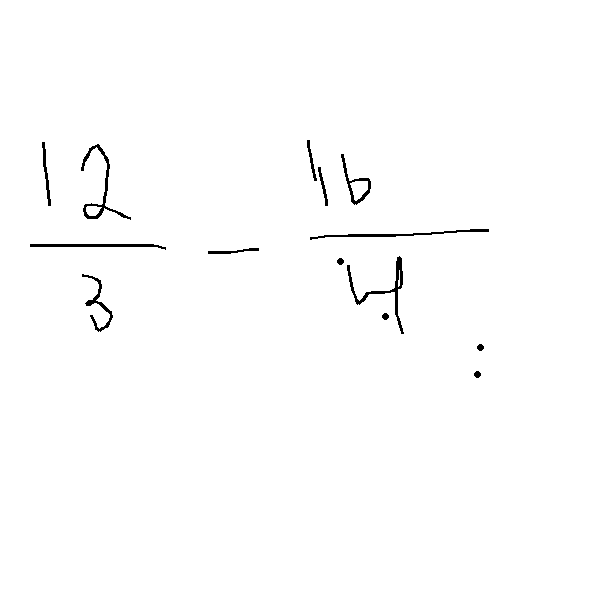 \frac{12}{3} - \frac{16}{4}